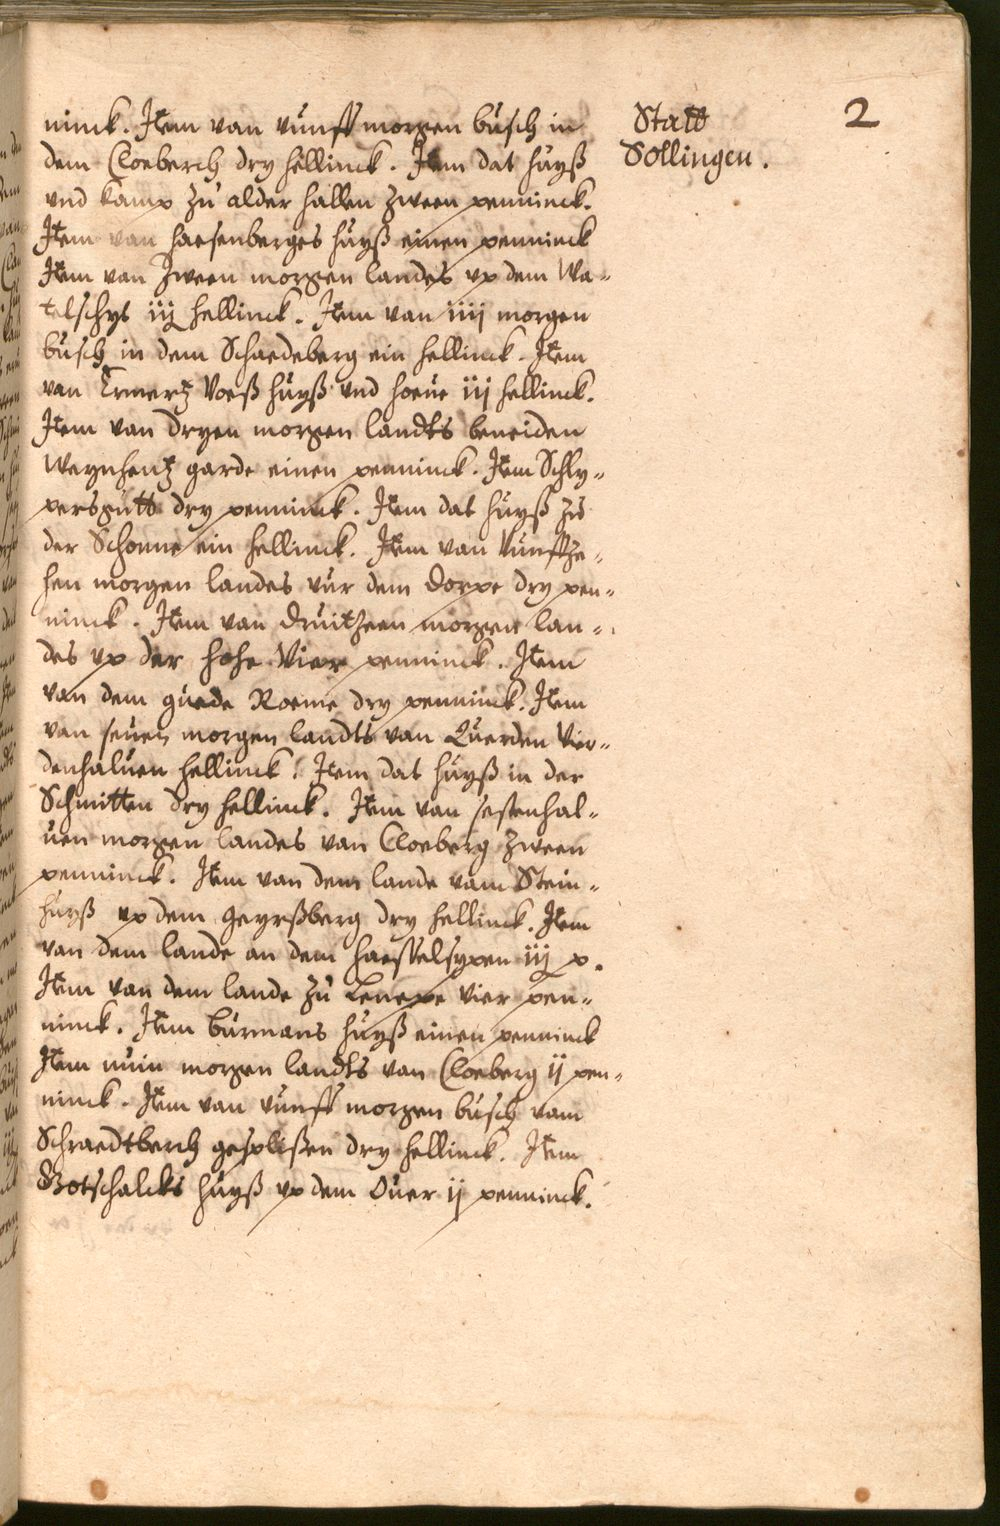 2
Statt
Sollingen.
ninck. Item van vunff morgen busch in
dem Cloeberch dry hellinck. Item dat huyß
vnd kamp zu alder hallen zween penninck.
Item van haesenberges huyß einen penninck
Item van Zween morgen landes vp dem Wa-
telschys iij hellinck. Item van iiij morgen
busch in dem Schaedeberg ein hellinck. Item
van Voeß huyß vnd hoeue iij hellinck.
Item van dryen morgen landts beneiden
Weynhentz garde einen penninck. Item Schly-
persgutt dry penninck. Item dat huyß zu
der Schonne ein hellinck. Item van Vunffze-
hen morgen landes vur dem dorpe dry pen-
ninck. Item van druitzeen morgen lan-
des vp der hohe Vier penninck. Item
van dem guede Roeme dry penninck. Item
van seuen morgen landts van Querden Vier-
denhaluen hellinck. Item dat huyß in der
Schmitten dry hellinck. Item van sestenhal-
uen morgen landes van Cloeberg zween
penninck. Item van dem lande vam Stein-
huyß vp dem Geyrßberg dry hellinck. Item
van dem lande an dem haesselsypen iij p.
Item van dem lande zu Lenepe Vier pen-
ninck. Item burmans huyß einen penninck
Item nuin morgen landts van Cloeberg ij pen-
ninck. Item van vunff morgen busch vam
Schraedtberch gesplißen dry hellinck. Item
Gotschalcks huyß vp dem Ouer ij penninck.